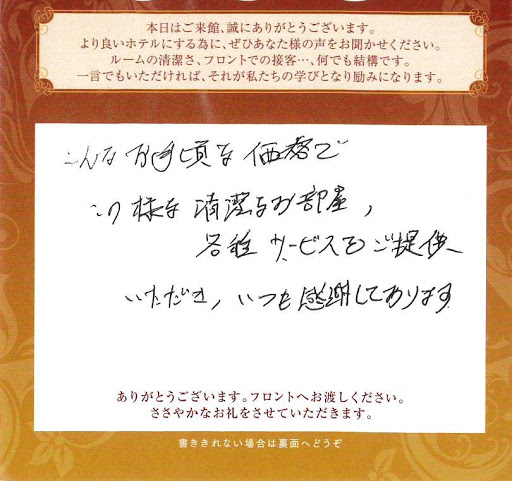 本日はご来館、誠にありがとうございます。
より良いホテルにする為に、ぜひあなた様の声をお聞かせください。
ルームの清潔さ、フロントでの接客…、何でも結構です。
一言でもいただければ、それが私たちの学びとなり励みになります。
こんなお手頃な価格で
この様な清潔なお部屋,
各種サービスをご提供
いただき,いつも感謝しております
ありがとうございます。フロントへお渡しください。
ささやかなお礼をさせていただきます。
書ききれない場合は裏面へどうぞ